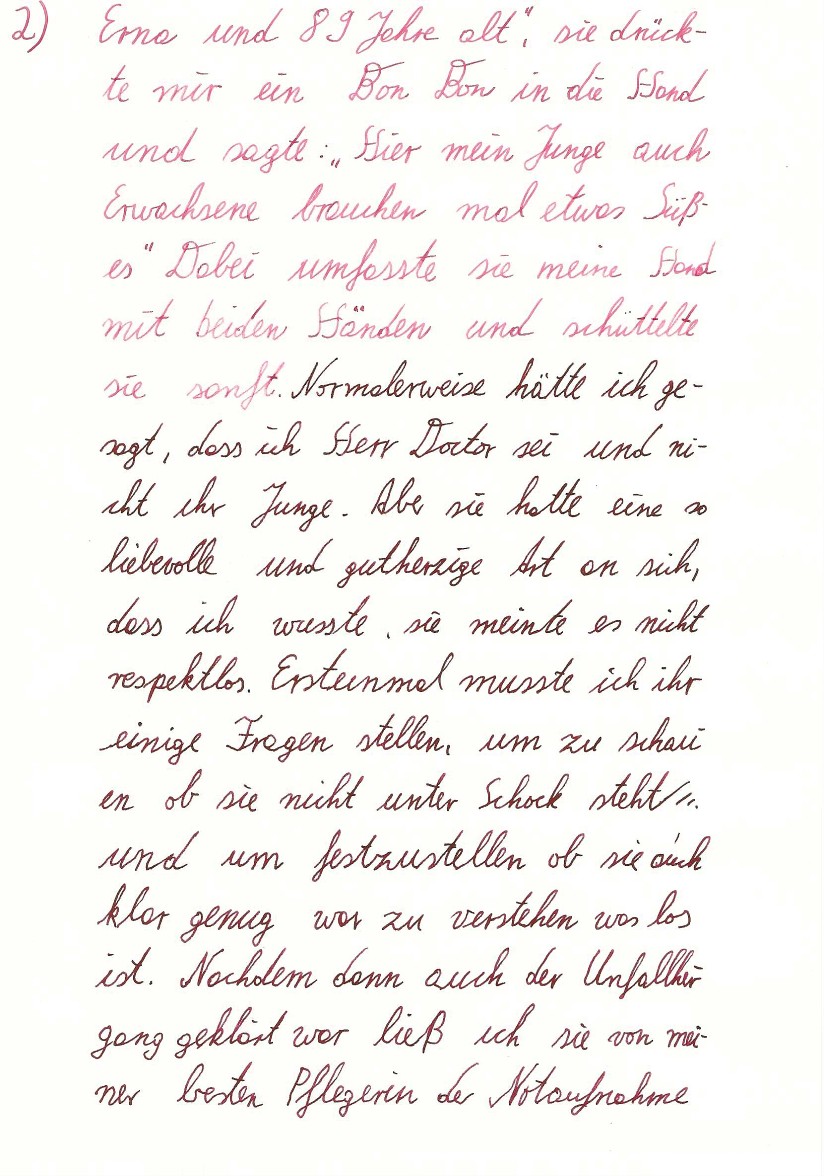 2) Erna und 89 Jahre alt", sie drück-
te mir ein Bon Bon in die Hand
und sagte: „Hier mein Junge auch
Erwachsene brauchen mal etwas Süß-
es" Dabei umfasste sie meine Hand
mit beiden Händen und schüttelte
sie sanft. Normalerweise hätte ich ge-
sagt, dass ich Herr Doctor sei und ni-
cht ihr Junge. Aber sie hatte eine so
liebevolle und gutherzige Art an sich,
dass ich wusste, sie meinte es nicht
respektlos. Ersteinmal musste ich ihr
einige Fragen stellen, um zu schau
en ob sie nicht unter Schock steht
und um festzustellen ob sie auch
klar genug war zu verstehen was los
ist. Nachdem dann auch der Unfallher
gang geklärt war ließ ich sie von mei-
ner besten Pflegerin der Notaufnahme